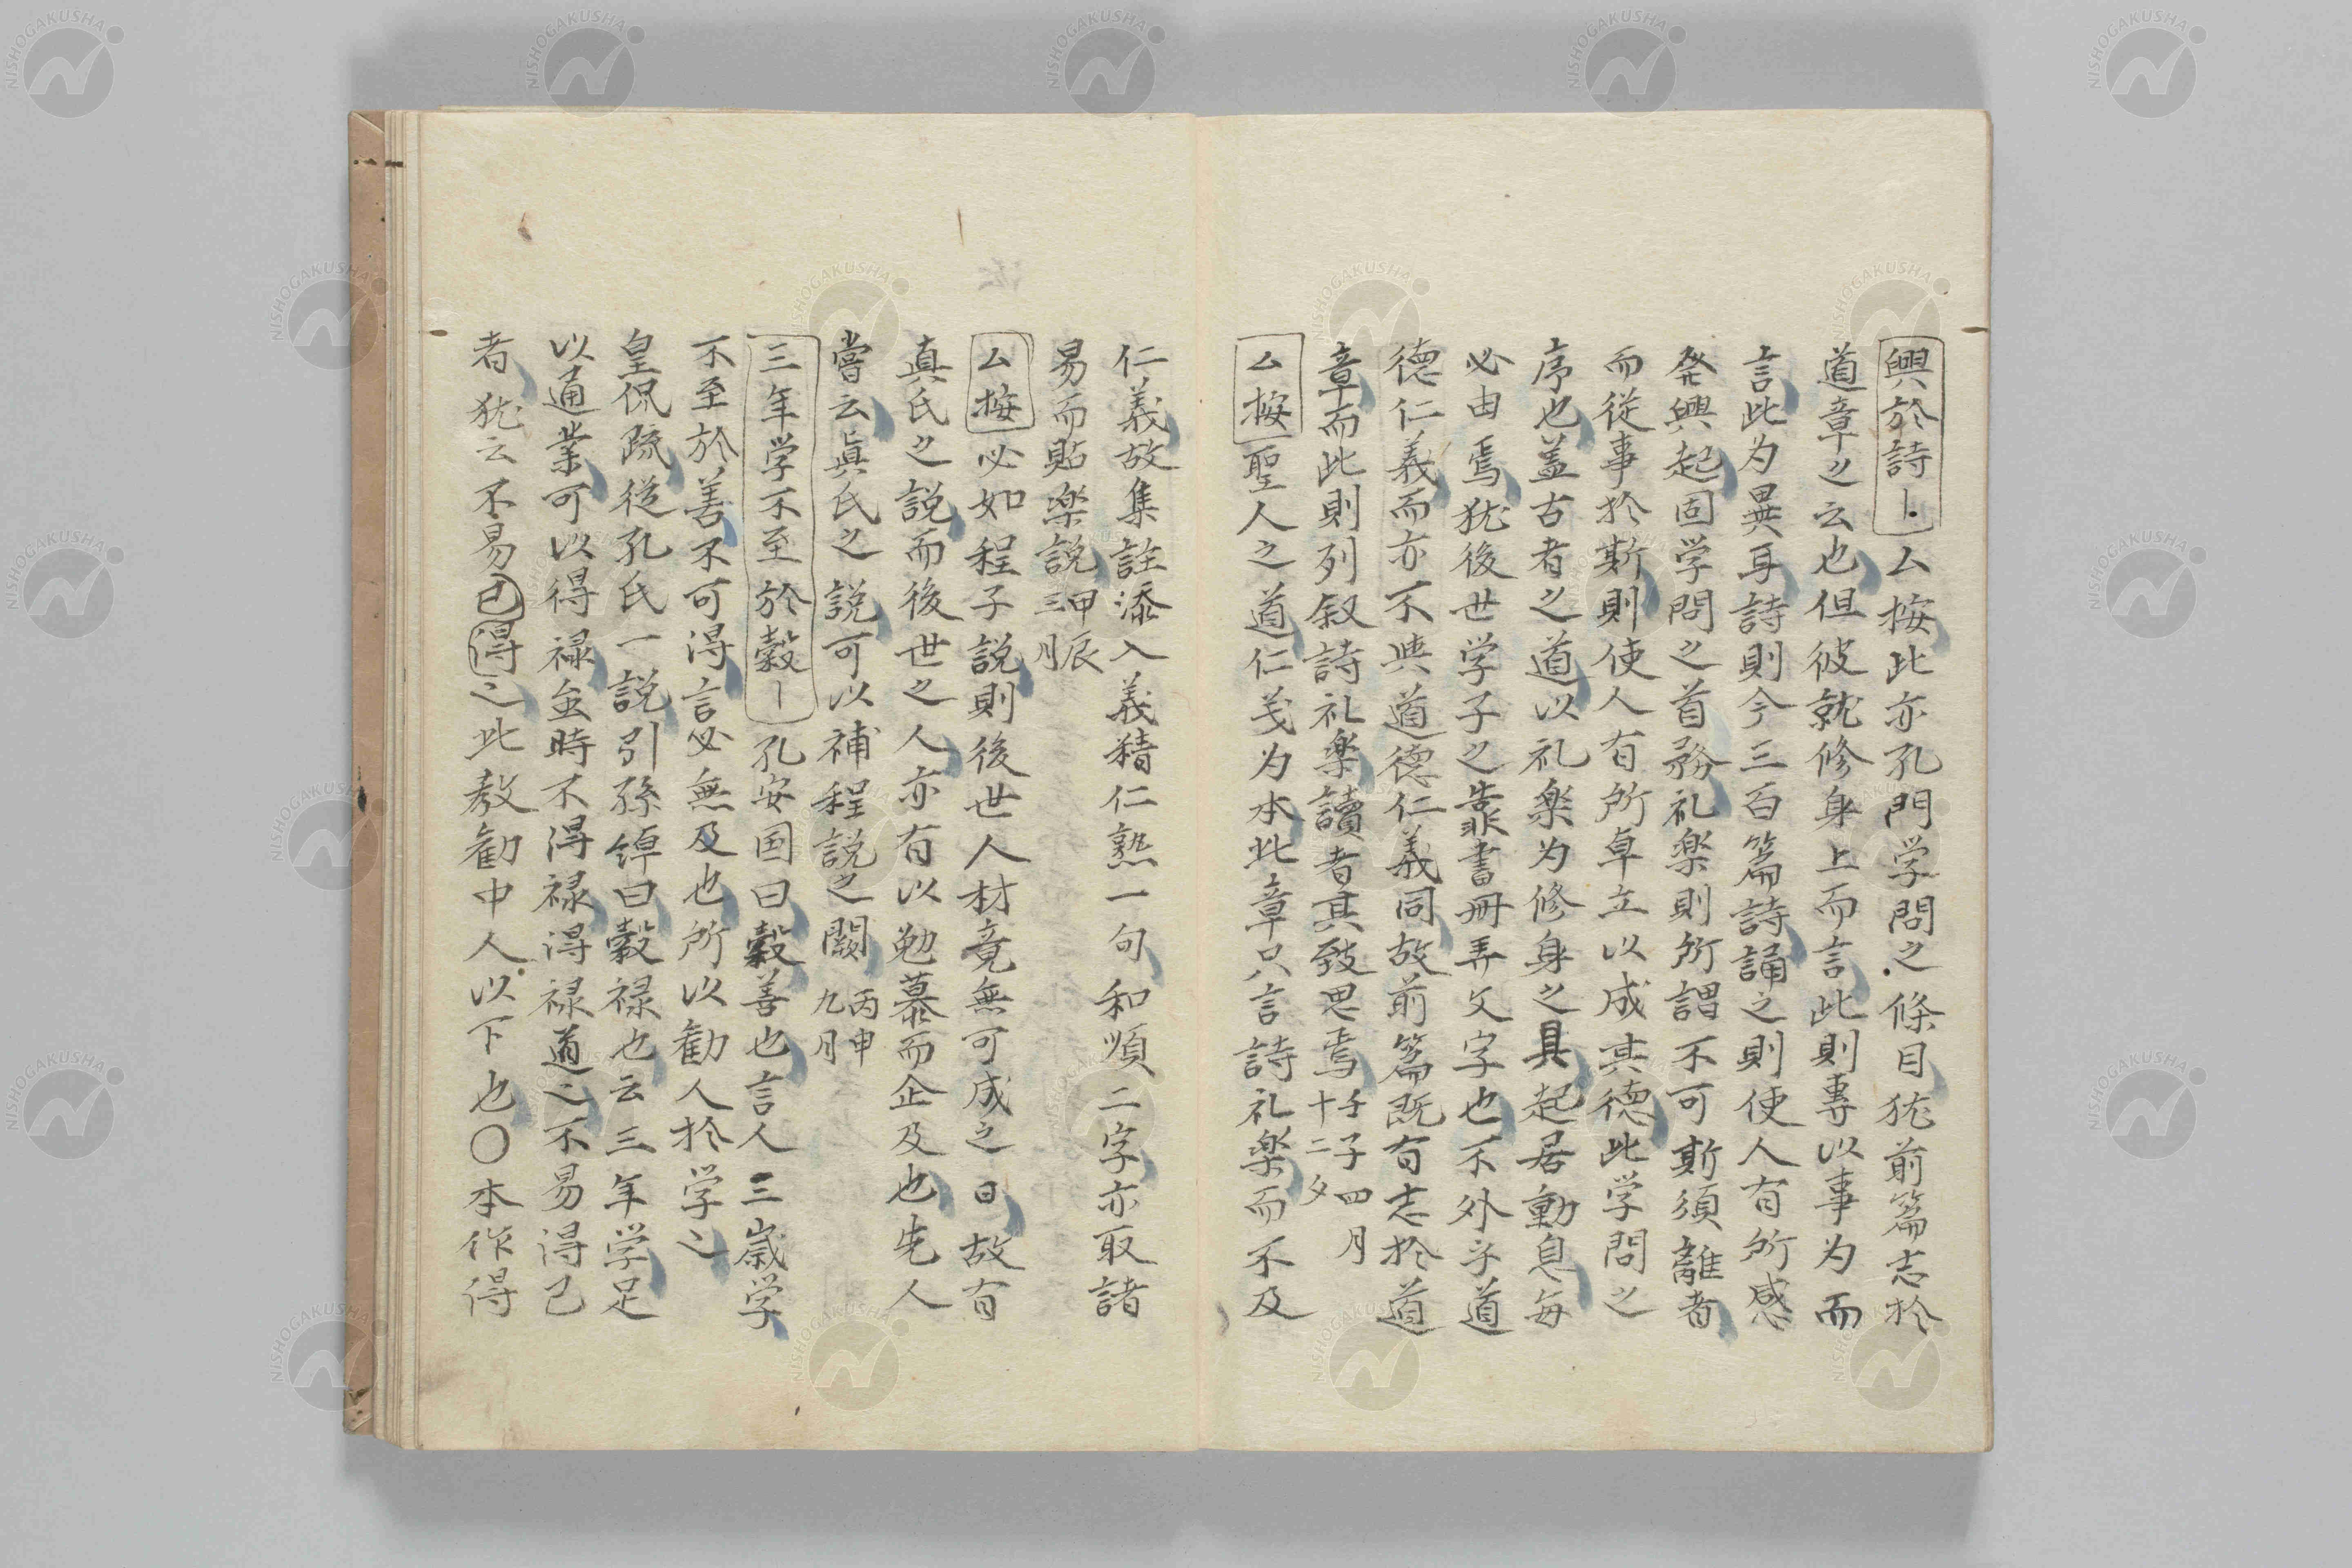 興於詩｜厶按此亦孔門学問之條目犹前篇志於
道章之云也但彼就修身上而言此則專以事为而
言此为異耳詩則今三百篇詩誦之則使人有所感
発興起固学問之首務礼楽則所謂不可斯須離者
而従事於斯則使人有所卓立以成其徳此学問之
序也盖古者之道以礼楽为修身之具起居動息毎
必由焉犹後世学子之靠書冊弄文字也不外乎道
徳仁義而亦不与道徳仁義同故前篇既有志於道
章而此則列叙詩礼楽讀者其致思焉壬子四月十二夕
厶按聖人之道仁义为本此章只言詩礼楽而不及
仁義故集註添入義精仁熟一句和順二字亦取諸
易而貼楽説甲辰三月
厶按必如程子説則後世人材竟無可成之日故有
真氏之説而後世之人亦有以勉慕而企及也先人
嘗云眞氏之説可以補程説之闕丙申九月
三年学不至於穀｜孔安国曰穀善也言人三歳学
不至於善不可得言必無及也所以勸人於学也
皇侃䟽從孔氏一説引孫綽曰穀禄也云三年学足
以通業可以得禄虽時不得禄得禄道之不易得已
者犹云不易已得之此教勧中人以下也〇本作得
NISHOGAKUSHA